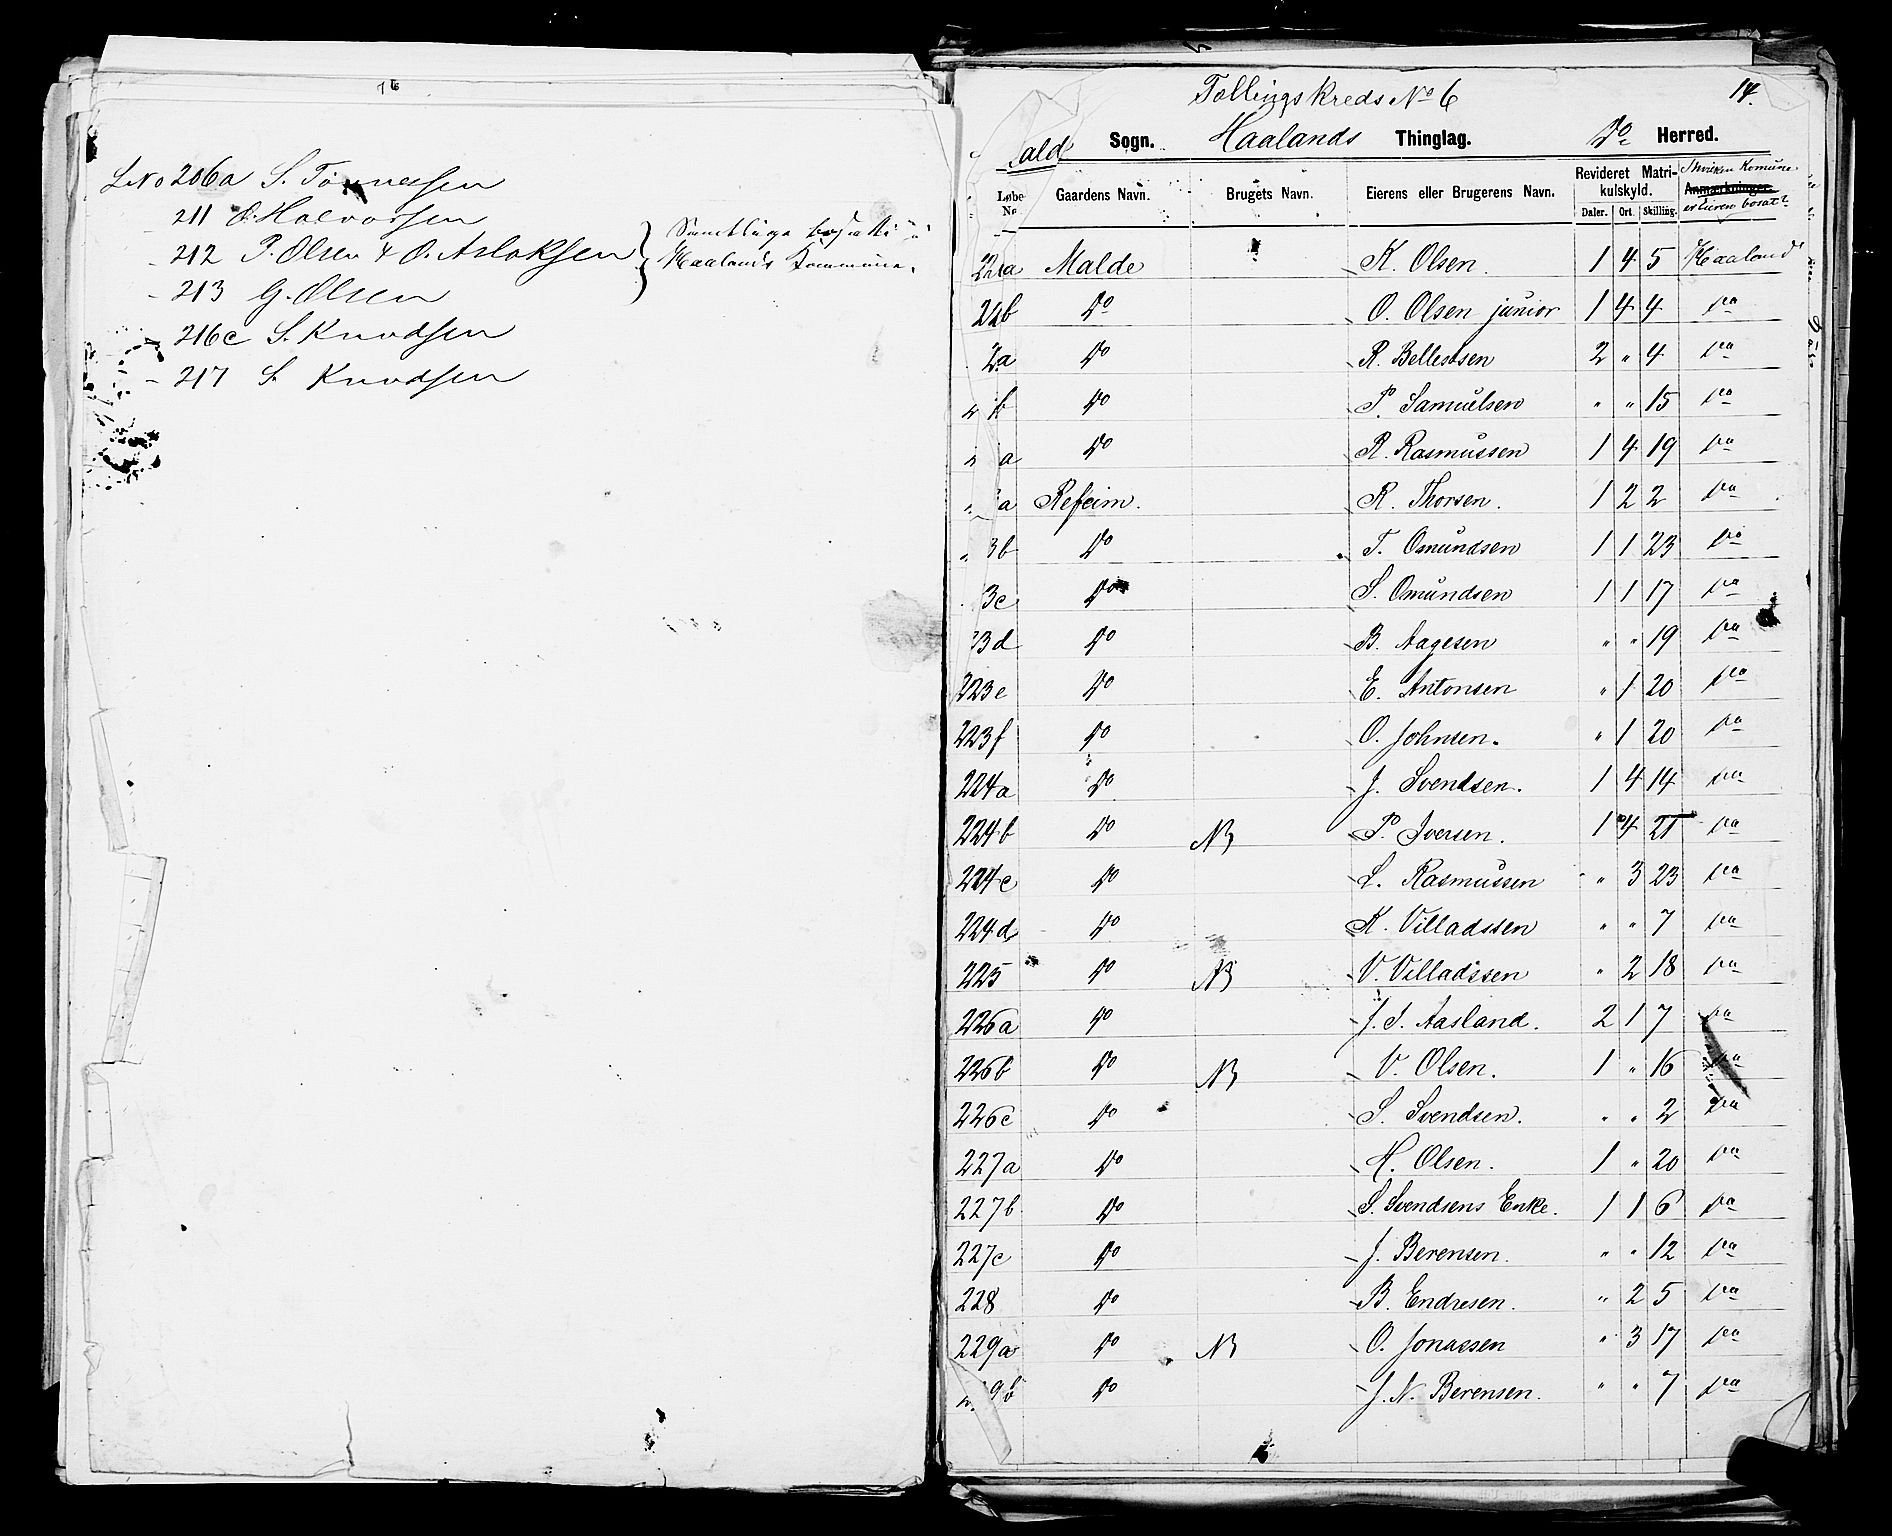 L No 206a S. Tønnessen
- 211 O. Halvorsen
- 212 P. Olsen & O. Aslaksen
- 213 G. Olsen
- 216c S. Knudsen
- 217 S. Knudsen
Samtlige bosatte i
Haalands Kommune.
Tællingskreds No 6
14.
ald Sogn. Haalands Thinglag. Do Herred.
Løbe No Gaardens Navn. Brugets Navn. Eierens eller Brugerens Navn. Revideret Matrikulskyld. Daler. Ort. Skilling. Anmærkninger. i hvilken Komune er Eieren bosat?
221a Malde K. Olsen. 1 4 5 Haaland
22b Do O. Olsen junior 1 4 4 Do
2a Do R. Bellessen 2 " 4 Do
b Do P. Samuelsen " " 15 Do
a Do R. Rasmussen 1 4 19 Do
a Refeim. R. Thorsen. 1 2 2 Do
3b Do T. Omundsen 1 1 23 Do
3c Do S. Omundsen 1 1 17 Do
3d Do B. Aagesen " " 19 Do
223e Do E. Antonsen " 1 20 Do
223f Do O. Johnsen. " 1 20 Do
224a Do J. Svendsen. 1 4 14 Do
224b Do NB P. Iversen. 1 4 21 Do
224c Do L. Rasmussen " 3 23 Do
224d Do K. Villadssen " " 7 Do
225 Do NB V. Villadssen " 2 18 Do
226a Do J. S. Aasland. 2 1 7 Do
226b Do NB V. Olsen. 1 " 16 Do
226c Do S. Svendsen. " " 2 Do
227a Do H. Olsen. 1 " 20 Do
227b Do S. Svendsens Enke. 1 1 6 Do
227c Do J. Berensen. " " 12 Do
228 Do B. Endresen. " 2 5 Do
229a Do NB O. Jonassen " 3 17 Do
9b Do J. N. Berensen. " " 7 Do